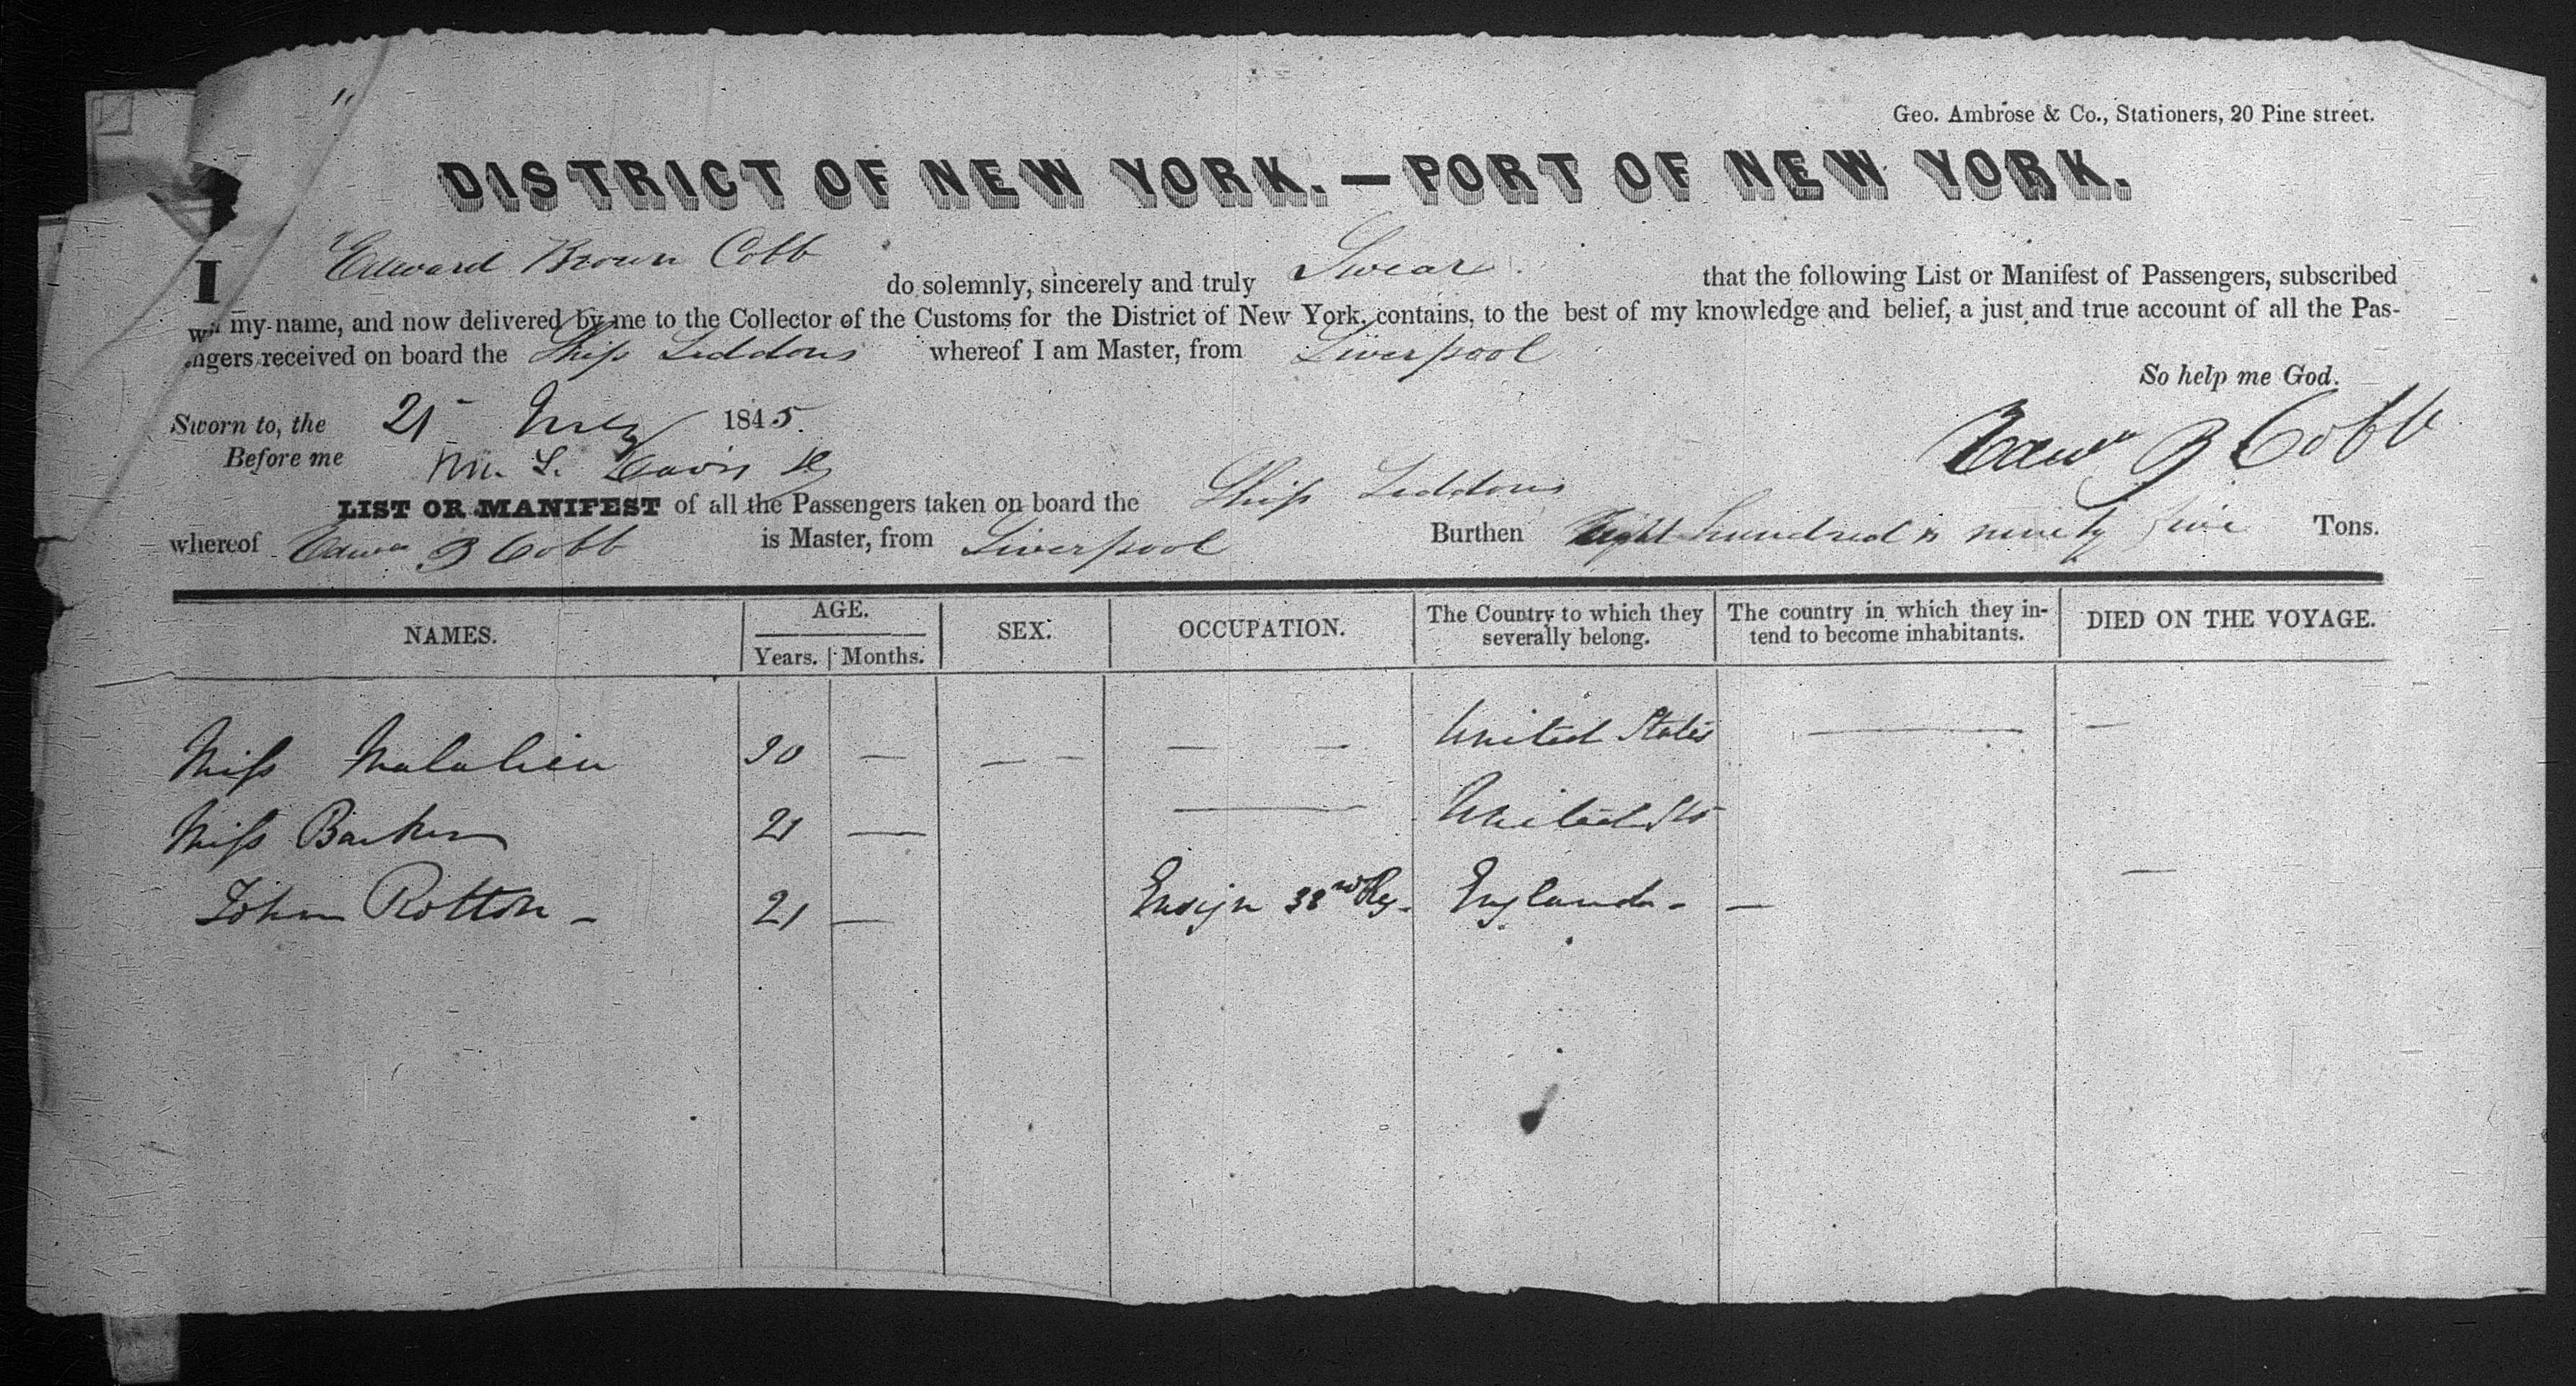 Geo. Ambrose & Co., Stationers, 20 Pine street.
DISTRICT OF NEW YORK.—PORT OF NEW YORK.
I Edward Brown Cobb do solemnly, sincerely and truly Swear that the following List or Manifest of Passengers, subscribed
my name, and now delivered by me to the Collector of the Customs for the District of New York, contains, to the best of my knowledge and belief, a just and true account of all the Pas-
ngers received on board the Ship Siddons whereof I am Master, from Liverpool
So help me God.
Sworn to, the 21 1845.
Edwd B Cobb
Before me Wm. S. Davis
LIST OR MANIFEST of all the Passengers taken on board the Ship Siddons
whereof Edwd B Cobb is Master, from Liverpool Burthen Eight hundred & ninety five Tons.
NAMES. AGE. SEX. OCCUPATION. The Country to which they severally belong. The country in which they in-tend to become inhabitants. DIED ON THE VOYAGE.
Years. Months.
Miss 30 — — — — — United States — —
Miss Barker 21 — — United Sts
John Rotton - 21 — Ensign Reg. England - — —